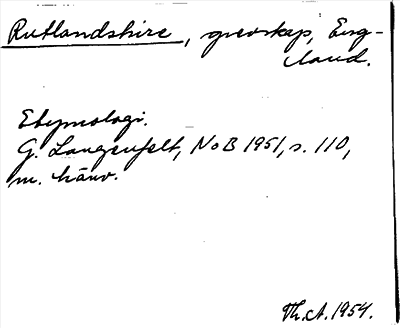 Rutlandshire, grevskap, Eng-
land.
Etymologi.
G. Langenfelt, NoB 1951, s. 110,
m. hänv.
Th.A. 1954.